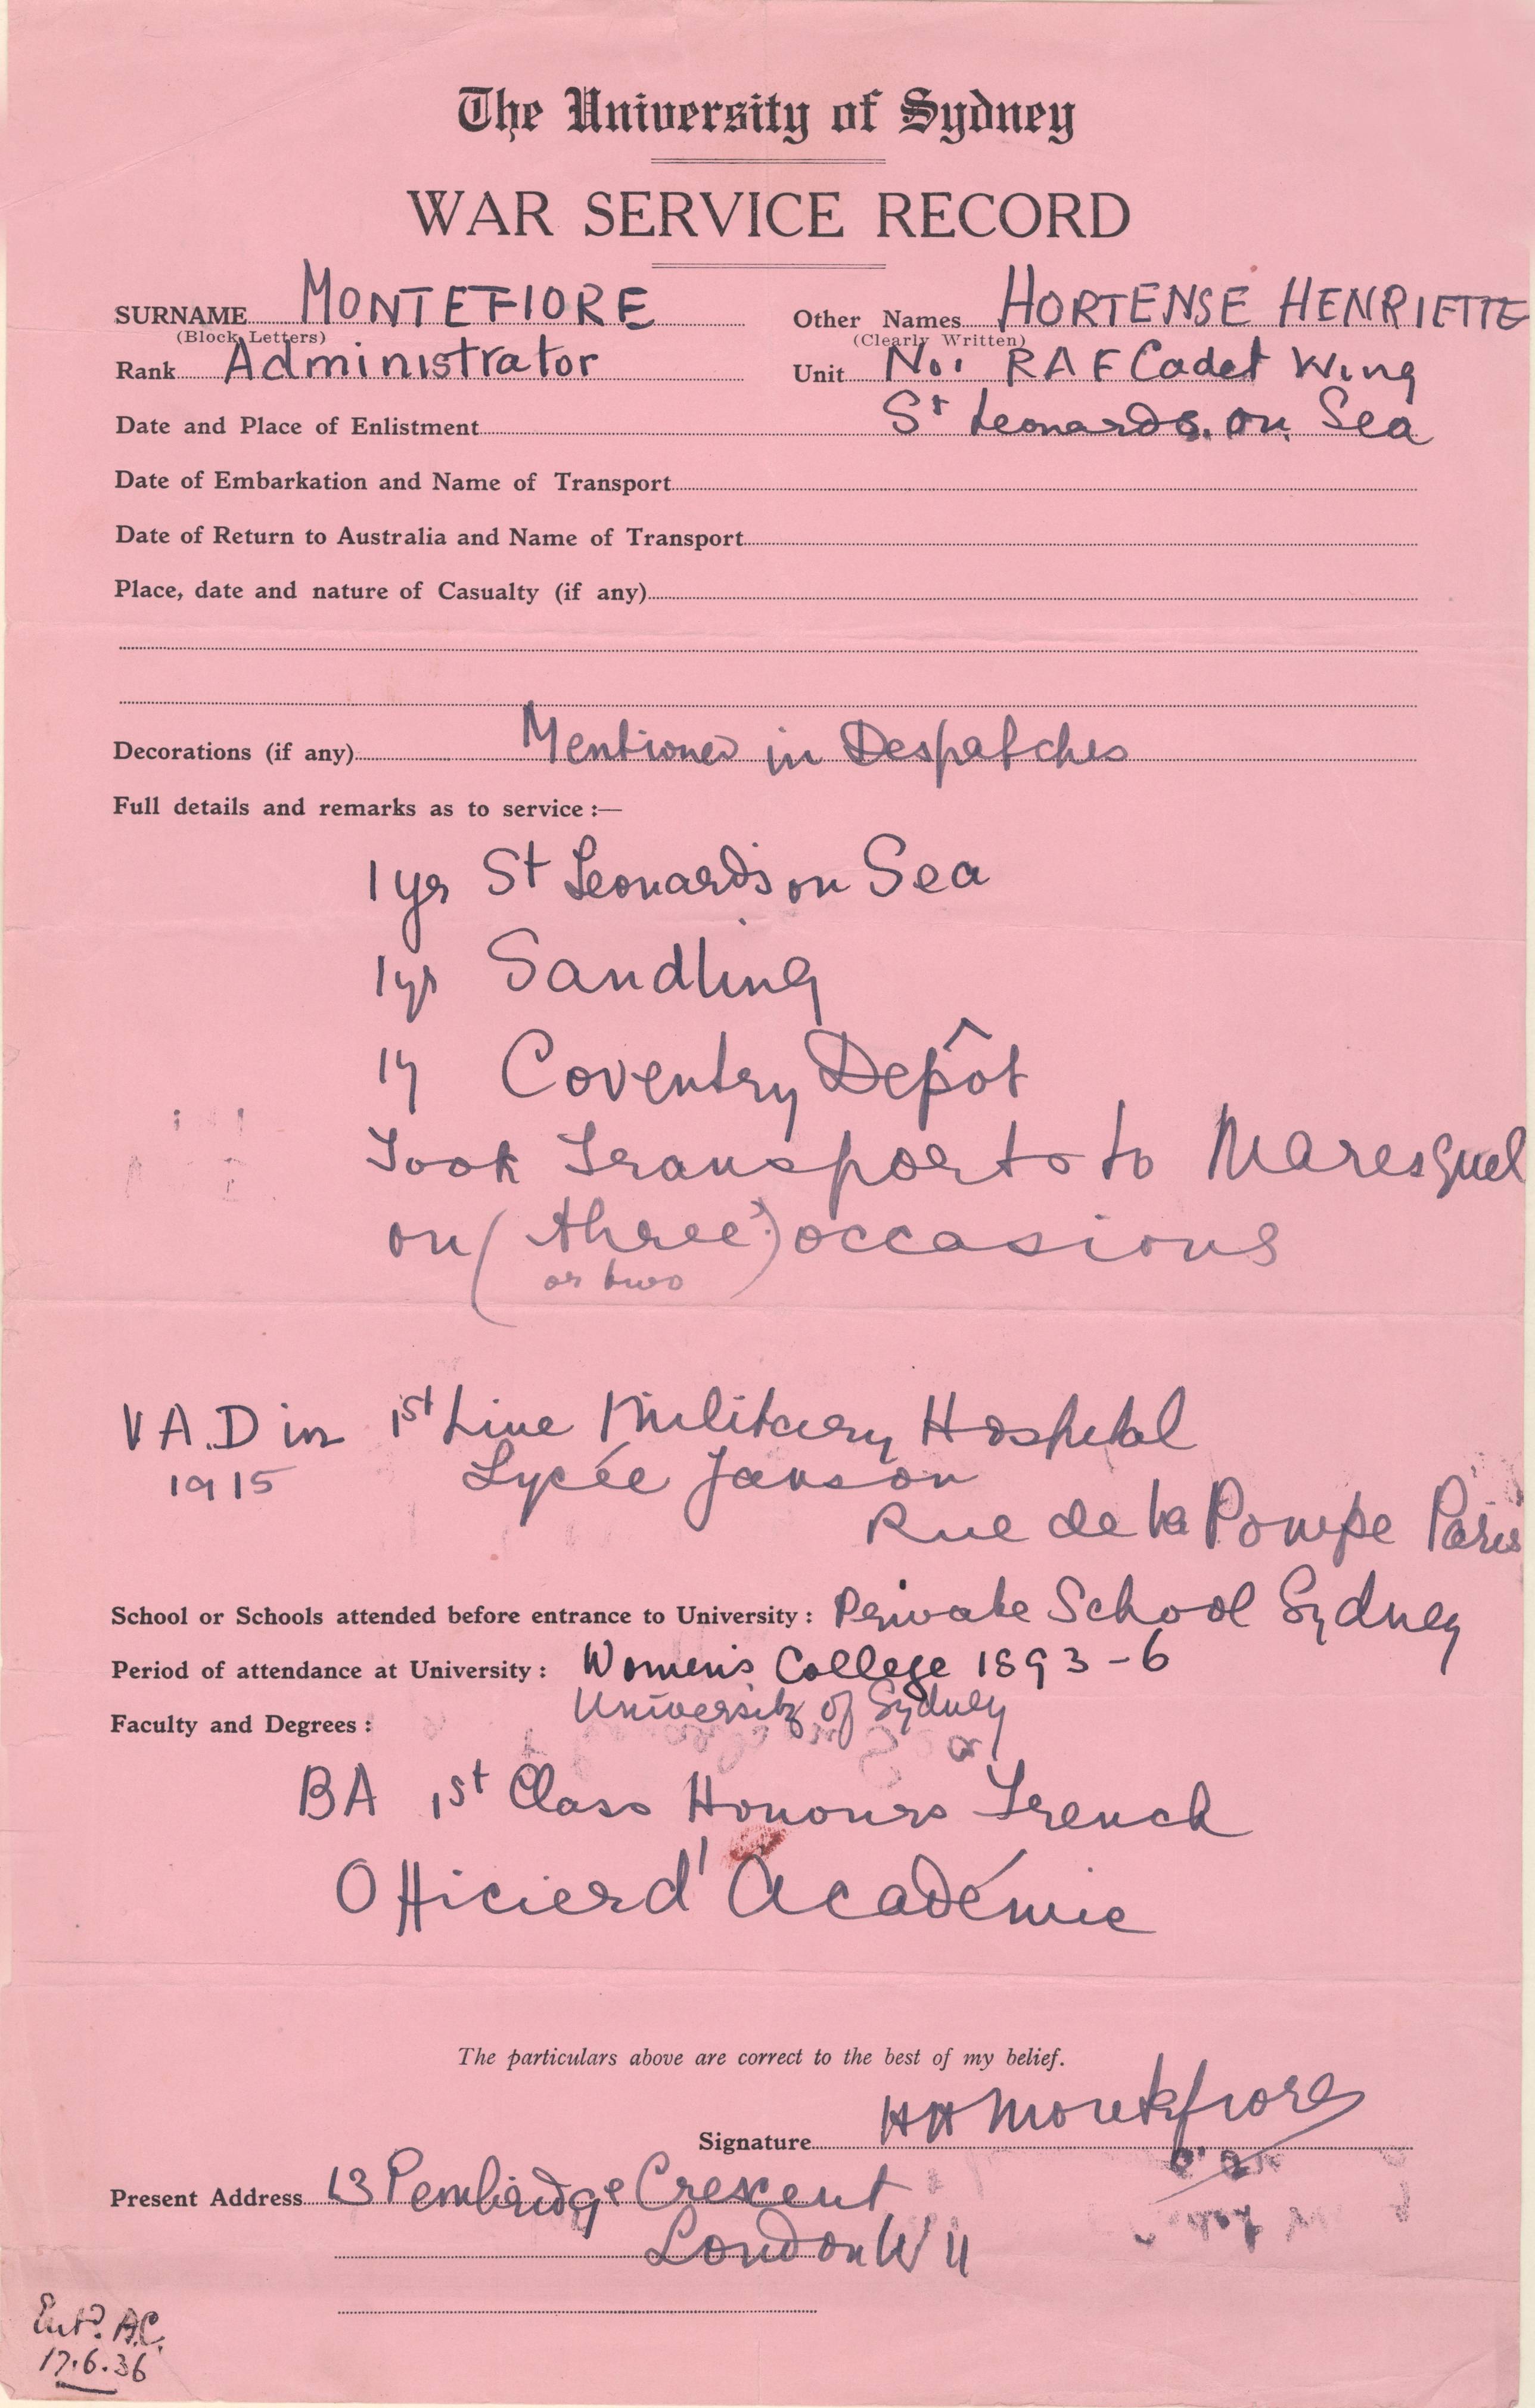 The University of Sydney
WAR SERVICE RECORD
SURNAME MONTEFIORE Other Names HORTENSE HENRIETTE
(Block Letters) (Clearly Written)
Rank Administrator Unit No. 1 RAF Cadet Wing
Date and Place of Enlistment St Leonards. on. Sea
Date of Embarkation and Name of Transport
Date of Return to Australia and Name of Transport
Place, date and nature of Casualty (if any)
Decorations (if any) Mentioned in Despatches
Full details and remarks as to service :—
1 yr St Leonards on Sea
1 yr Sandling
1 y Coventry Depôt
Took Transports to Maresquel
on (three?) occasions
or two
V A.D in 1st Line Military Hospital
1915 Lycée Janson
Rue de la Pompe Paris
School or Schools attended before entrance to University : Private School Sydney
Period of attendance at University : Women's College 1893-6
University of Sydney
Faculty and Degrees :
BA 1st Class Honours French
Officier d'Académie
The particulars above are correct to the best of my belief.
Signature HH Montefiore
Present Address 13 Pembridge Crescent
London W 11
Entd. A.C.
17.6.36